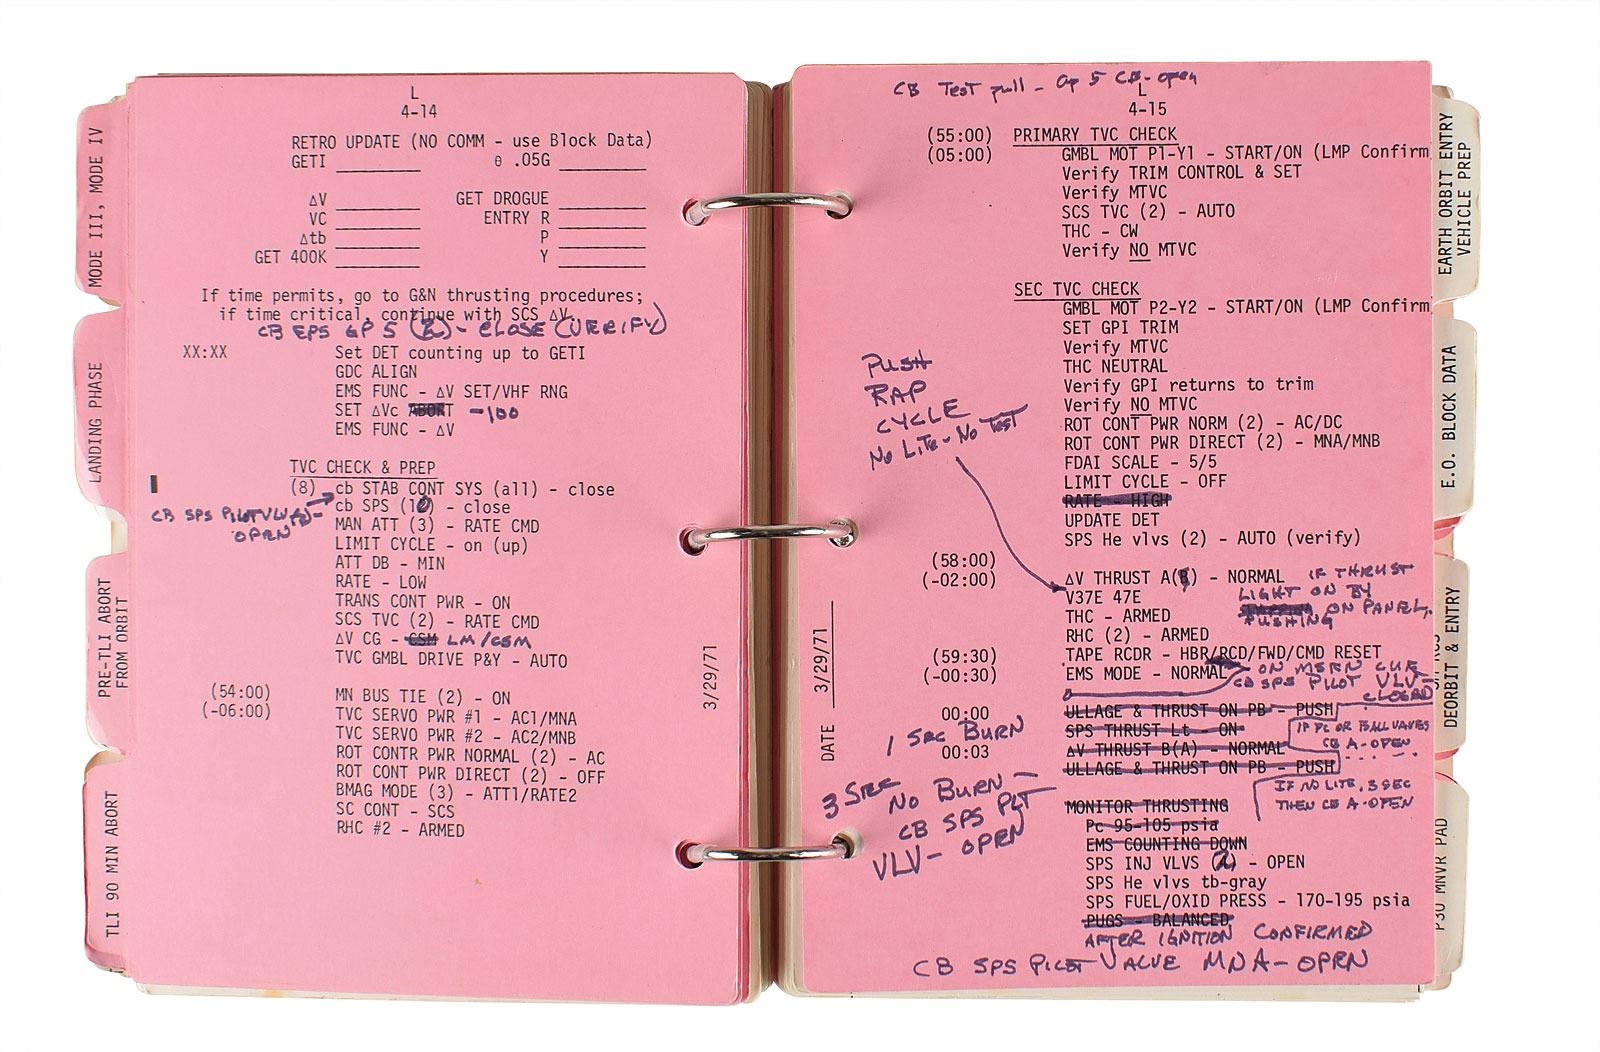 MODE III, MODE IV
LANDING PHASE
PRE-TLI ABORT
FROM ORBIT
TLI 90 MIN ABORT
L
4-14
RETRO UPDATE (NO COMM - use Block Data)
GETI ________ θ .05G ________
ΔV ________ GET DROGUE ________
VC ________ ENTRY R ________
Δtb ________ P ________
GET 400K ________ Y ________
If time permits, go to G&N thrusting procedures;
if time critical, continue with SCS ΔV.
CB EPS GP 5 (2) - CLOSE (VERIFY)
XX:XX Set DET counting up to GETI
GDC ALIGN
EMS FUNC - ΔV SET/VHF RNG
SET ΔVc ABORT -100
EMS FUNC - ΔV
TVC CHECK & PREP
(8) cb STAB CONT SYS (all) - close
cb SPS (10) - close
CB SPS PILOT VLV (2) -
OPEN
MAN ATT (3) - RATE CMD
LIMIT CYCLE - on (up)
ATT DB - MIN
RATE - LOW
TRANS CONT PWR - ON
SCS TVC (2) - RATE CMD
ΔV CG - CSM LM/CSM
TVC GMBL DRIVE P&Y - AUTO
(54:00) MN BUS TIE (2) - ON
(-06:00) TVC SERVO PWR #1 - AC1/MNA
TVC SERVO PWR #2 - AC2/MNB
ROT CONTR PWR NORMAL (2) - AC
ROT CONT PWR DIRECT (2) - OFF
BMAG MODE (3) - ATT1/RATE2
SC CONT - SCS
RHC #2 - ARMED
3/29/71
CB Test pull - Gp 5 CB - open
L
4-15
(55:00) PRIMARY TVC CHECK
(05:00) GMBL MOT P1-Y1 - START/ON (LMP Confirm
Verify TRIM CONTROL & SET
Verify MTVC
SCS TVC (2) - AUTO
THC - CW
Verify NO MTVC
SEC TVC CHECK
GMBL MOT P2-Y2 - START/ON (LMP Confirm
SET GPI TRIM
Verify MTVC
THC NEUTRAL
Verify GPI returns to trim
Verify NO MTVC
ROT CONT PWR NORM (2) - AC/DC
ROT CONT PWR DIRECT (2) - MNA/MNB
FDAI SCALE - 5/5
LIMIT CYCLE - OFF
RATE - HIGH
UPDATE DET
SPS He vlvs (2) - AUTO (verify)
PUSH
RAP
CYCLE
No Lite - No Test
(58:00)
(-02:00) ΔV THRUST A(B) - NORMAL IF THRUST
V37E 47E LIGHT ON BY
THC - ARMED ON PANEL,
PUSHING
RHC (2) - ARMED
(59:30) TAPE RCDR - HBR/RCD/FWD/CMD RESET
(-00:30) EMS MODE - NORMAL ON MSFN CUE
CB SPS PILOT VLV
CLOSED
00:00 ULLAGE & THRUST ON PB - PUSH
SPS THRUST Lt - ON
IF PC OR BALL VALVES
CB A-OPEN
1 SEC BURN
00:03 ΔV THRUST B(A) - NORMAL
ULLAGE & THRUST ON PB - PUSH
IF NO LITE, 3 SEC
THEN CB A-OPEN
3 SEC
NO BURN -
CB SPS PLT
VLV - OPEN
MONITOR THRUSTING
Pc 95-105 psia
EMS COUNTING DOWN
SPS INJ VLVS (2) - OPEN
SPS He vlvs tb-gray
SPS FUEL/OXID PRESS - 170-195 psia
PUGS - BALANCED
AFTER IGNITION CONFIRMED
CB SPS PILOT VALVE MNA - OPEN
DATE 3/29/71
EARTH ORBIT ENTRY
VEHICLE PREP
E.O. BLOCK DATA
DEORBIT & ENTRY
P30 MNVR PAD